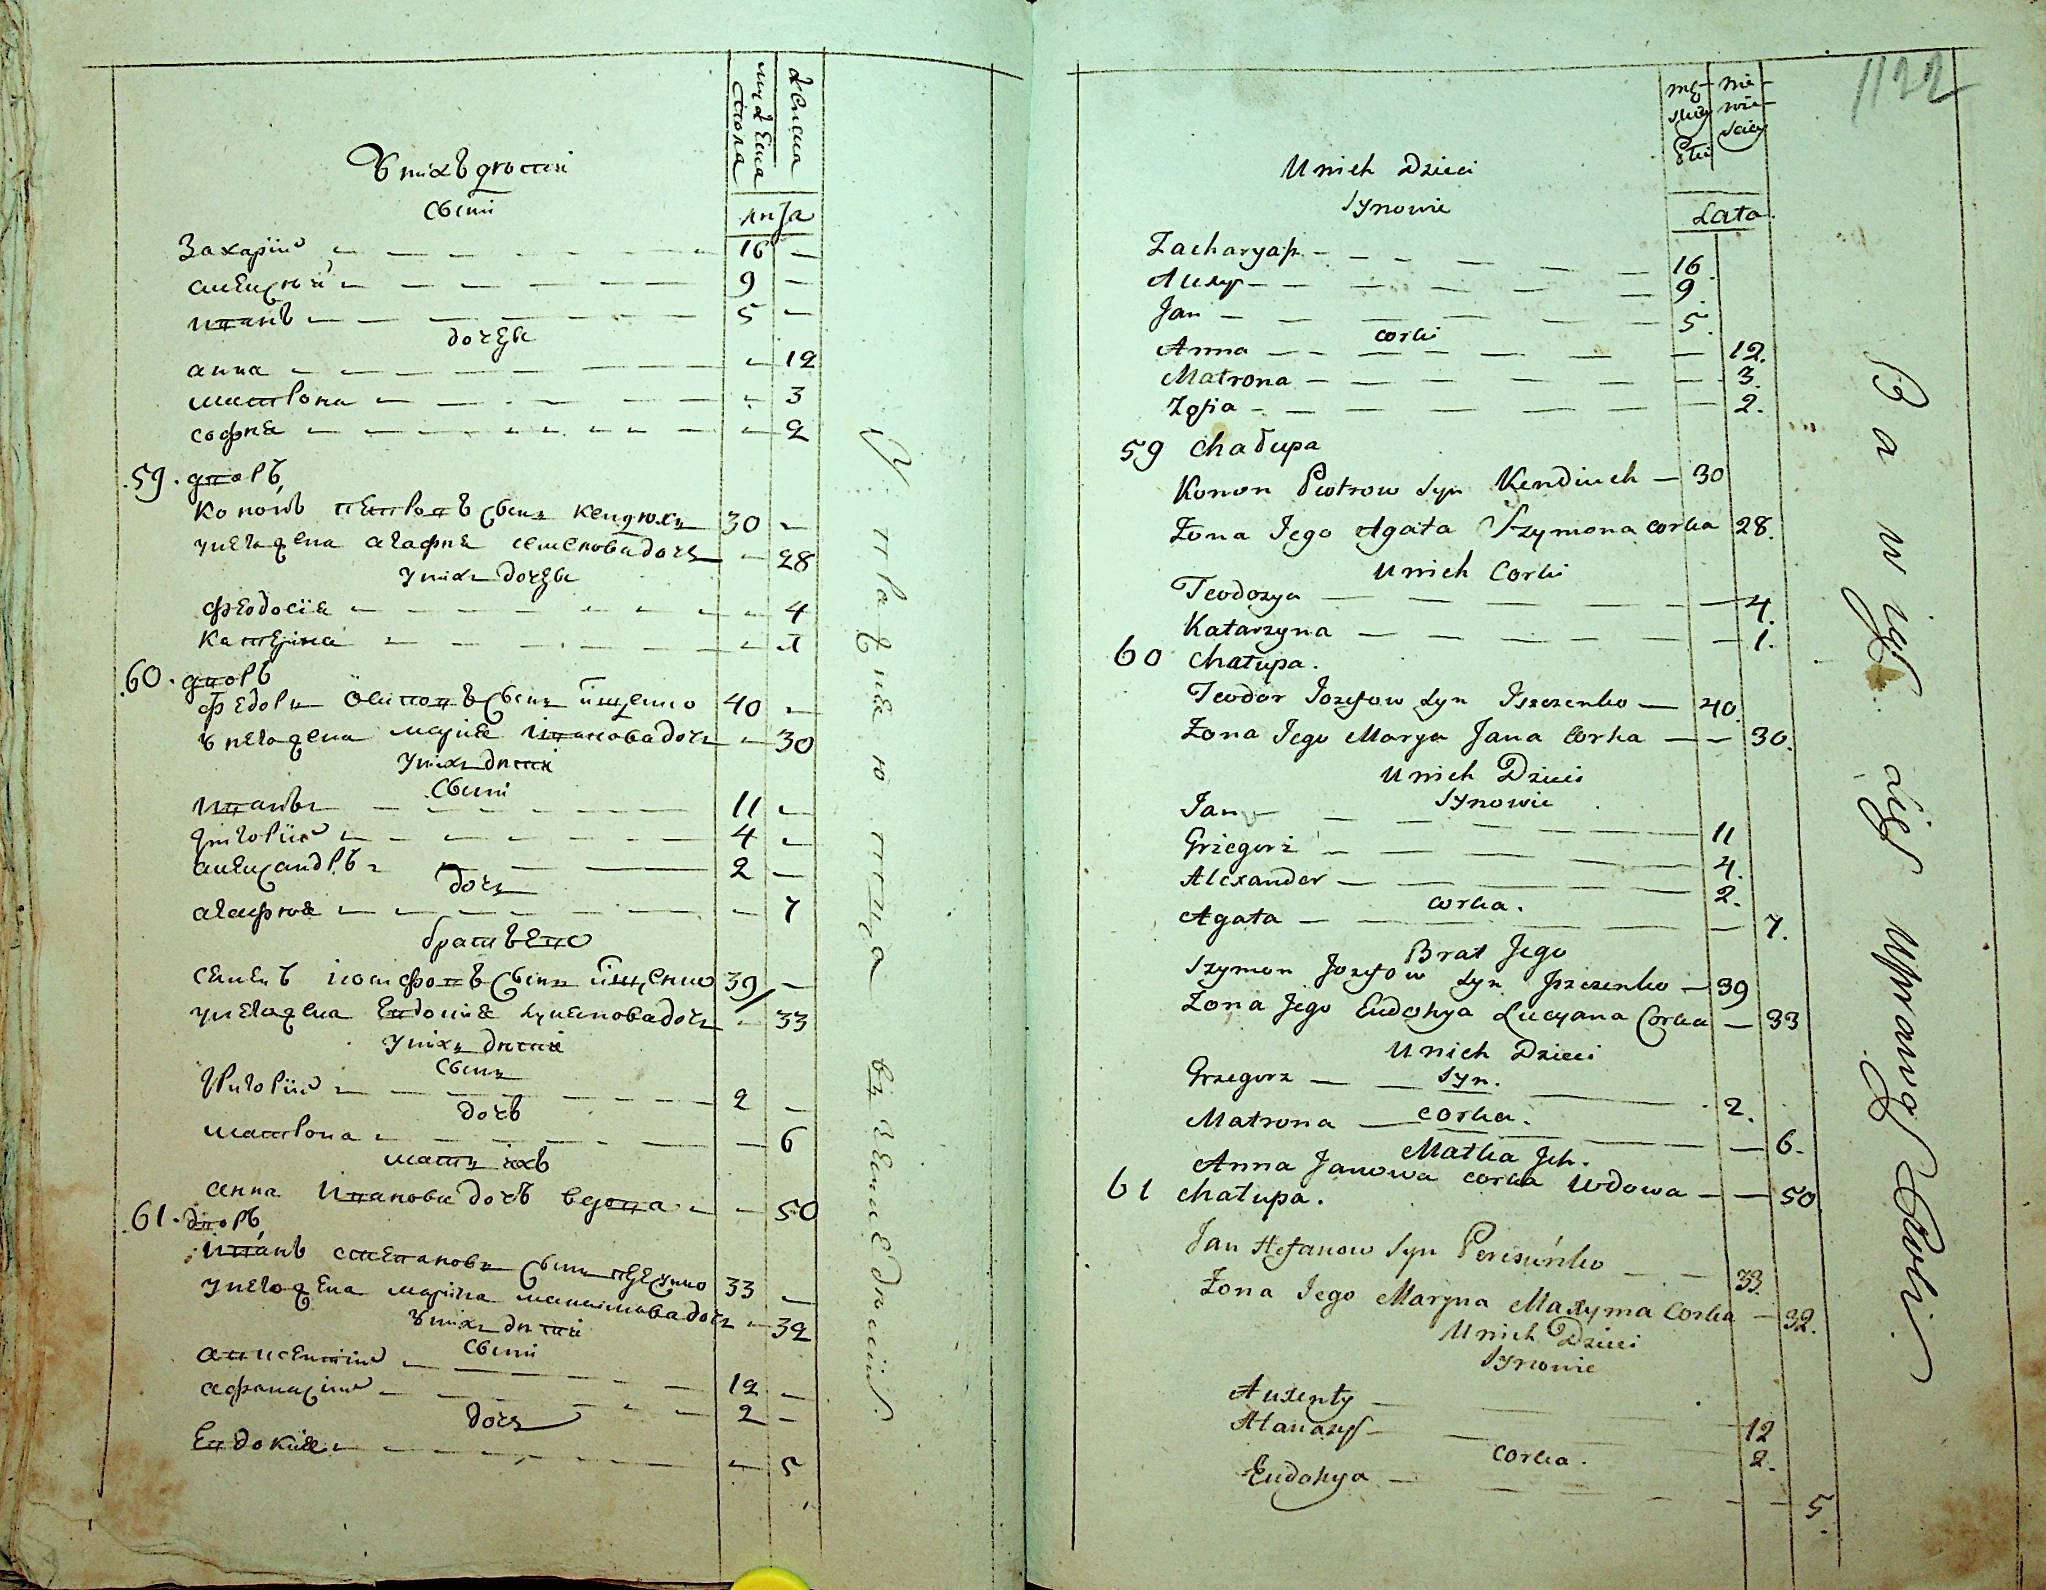 мужеска
пола
женска
У них дѣти
сыни
лѣта
Захарій — 16 —
Алексѣй — 9 —
иванъ — 5 —
дочеры
анна — 12
матрона — 3
софия — 2
59. дворъ
Кононъ петровъ сынъ кендюхъ 30 —
у него жена агафия семенова дочъ — 28
у нихъ дочеры
феодосія — 4
Катерина — 1
60. дворъ
Федоръ Осиповъ сынъ ищенко 40 —
у него жена марія иванова дочъ — 30
у нихъ дѣти
сыни
иванъ — 11 —
григорій — 4 —
александръ — 2 —
дочъ
агафия — 7
братъ его
семенъ иосифовъ сынъ ищенко 39 —
у него жена Евдокия лукянова дочъ — 33
у нихъ дѣти
сынъ
Григорій — 2 —
дочъ
матрона — 6
мать ихъ
анна иванова дочъ вдова — 50
61. дворъ
иванъ степановъ сынъ 33 —
у него жена марина максимова дочъ — 32
у нихъ дѣти
сыни
авксентій — 12 —
афанасій — 2 —
дочъ
Евдокия — 5
1122
mę-
skiey
Płci
nie-
wie-
sciey
U nich Dzieci
Synowie
Lata
Zacharyasz — 16.
Alexy — 9.
Jan — 5.
corki
Anna — 12.
Matrona — 3.
Zofia — 2.
59 Chałupa
Konon Piotrow Syn Kendiuch — 30
Zona Jego Agata Szymona corka 28.
U nich Corki
Teodozya — 4.
Katarzyna — 1.
60 Chałupa.
Teodor Jozefow Syn Iszczenko — 40.
Zona Jego Marya Jana Corka — 30.
U nich Dzieci
Synowie
Jan — 11
Grzegorz — 4.
Alexander — 2.
corka.
Agata — 7.
Brat Jego
Szymon Jozefow Syn Jszczenko — 39
Zona Jego Eudokya Lucyana Corka — 33
U nich Dzieci
Syn.
Grzegorz — 2.
corka.
Matrona — 6.
Matka Jch.
Anna Janowa corka Wdowa — 50
61 Chałupa.
Jan Stefanow Syn — 33.
Zona Jego Maryna Maxyma Corka — 32.
U nich Dzieci
Synowie
Auxenty — 12
Atanazy — 2.
corka.
Eudokya — 5.
Bawiący się Uprawą Roli.